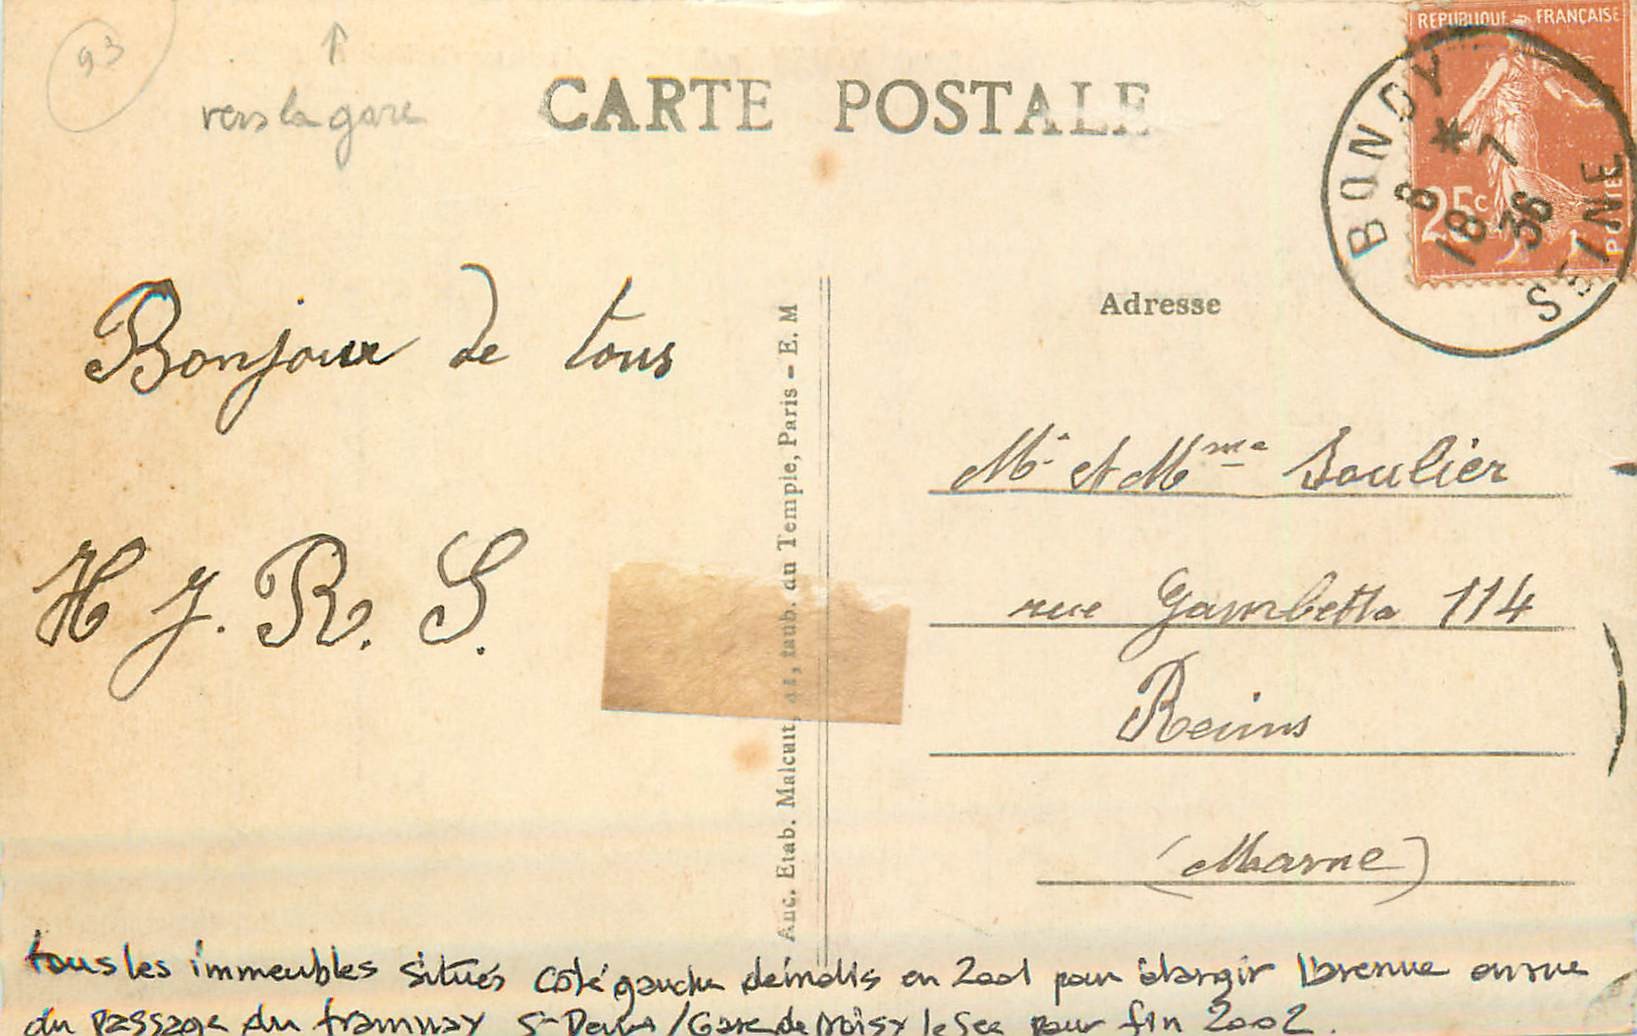 93
↑
vers la gare
CARTE POSTALE
REPUBLIQUE FRANÇAISE
25c
POSTES
BONDY * SEINE
8 7
18 36
Adresse
Bonjour de tous
H J. R. S.
Mr et Mme Soulier
rue Gambetta 114
Reims
(Marne)
Anc. Etab. Malcuit, 41, faub. du Temple, Paris - E. M
tous les immeubles situés côté gauche démolis en 2001 pour élargir l'avenue en vue
du passage du tramway St Denis / Gare de Noisy le Sec pour fin 2002.